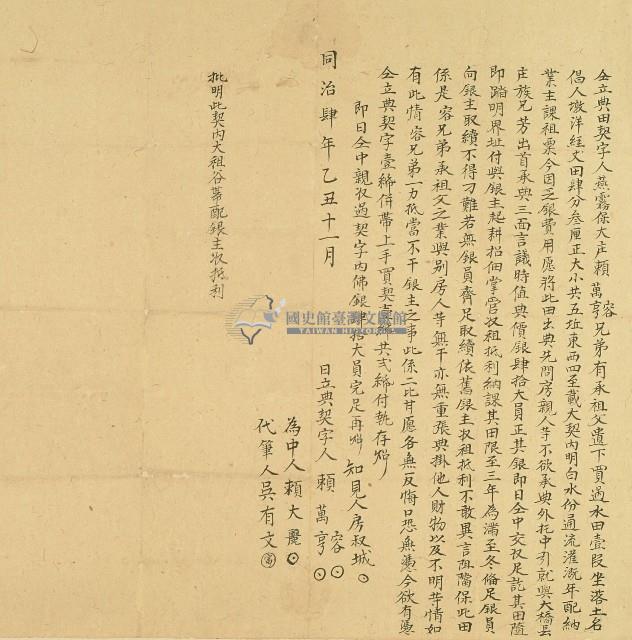 仝立典田契字人燕霧保大庄賴容萬亨兄弟有承祖父遺下買過水田壹段坐落土名
倡人墩洋經丈田肆分叁厘正大小共五坵東西四至載大契內明白水份通流灌溉年配納
業主課租票今因乏銀費用愿將此田出典先問房親人等不欲承典外托中引就與大橋
庄族兄芳出首承典三面言議時值典價銀肆拾大員正其銀即日仝中交收足訖其田隨
即踏明界址付與銀主起耕招佃掌管收租抵利納課其田限至三年為滿至冬俻足銀員
向銀主取續不得刁難若無銀員齊足取續依舊銀主收租抵利不敢異言阻擋保此田
係是容兄弟承祖父之業與別房人等無干亦無重張典掛他人財物以及不明等情如
有此情容兄弟一力抵當不干銀主之事此係二比甘愿各無反悔口恐無憑今欲有憑
仝立典契字壹紙併帶上手買契共弍紙付執存炤
即日仝中親收過契字內佛銀肆拾大員完足再炤
知見人房叔城
同治肆年乙丑十一月 日立典契字人賴容萬亨
為中人賴大麗
代筆人吳有文
批明此契內大租谷幕配銀主收抵利
國史館臺灣文獻館
TAIWAN HISTORICA